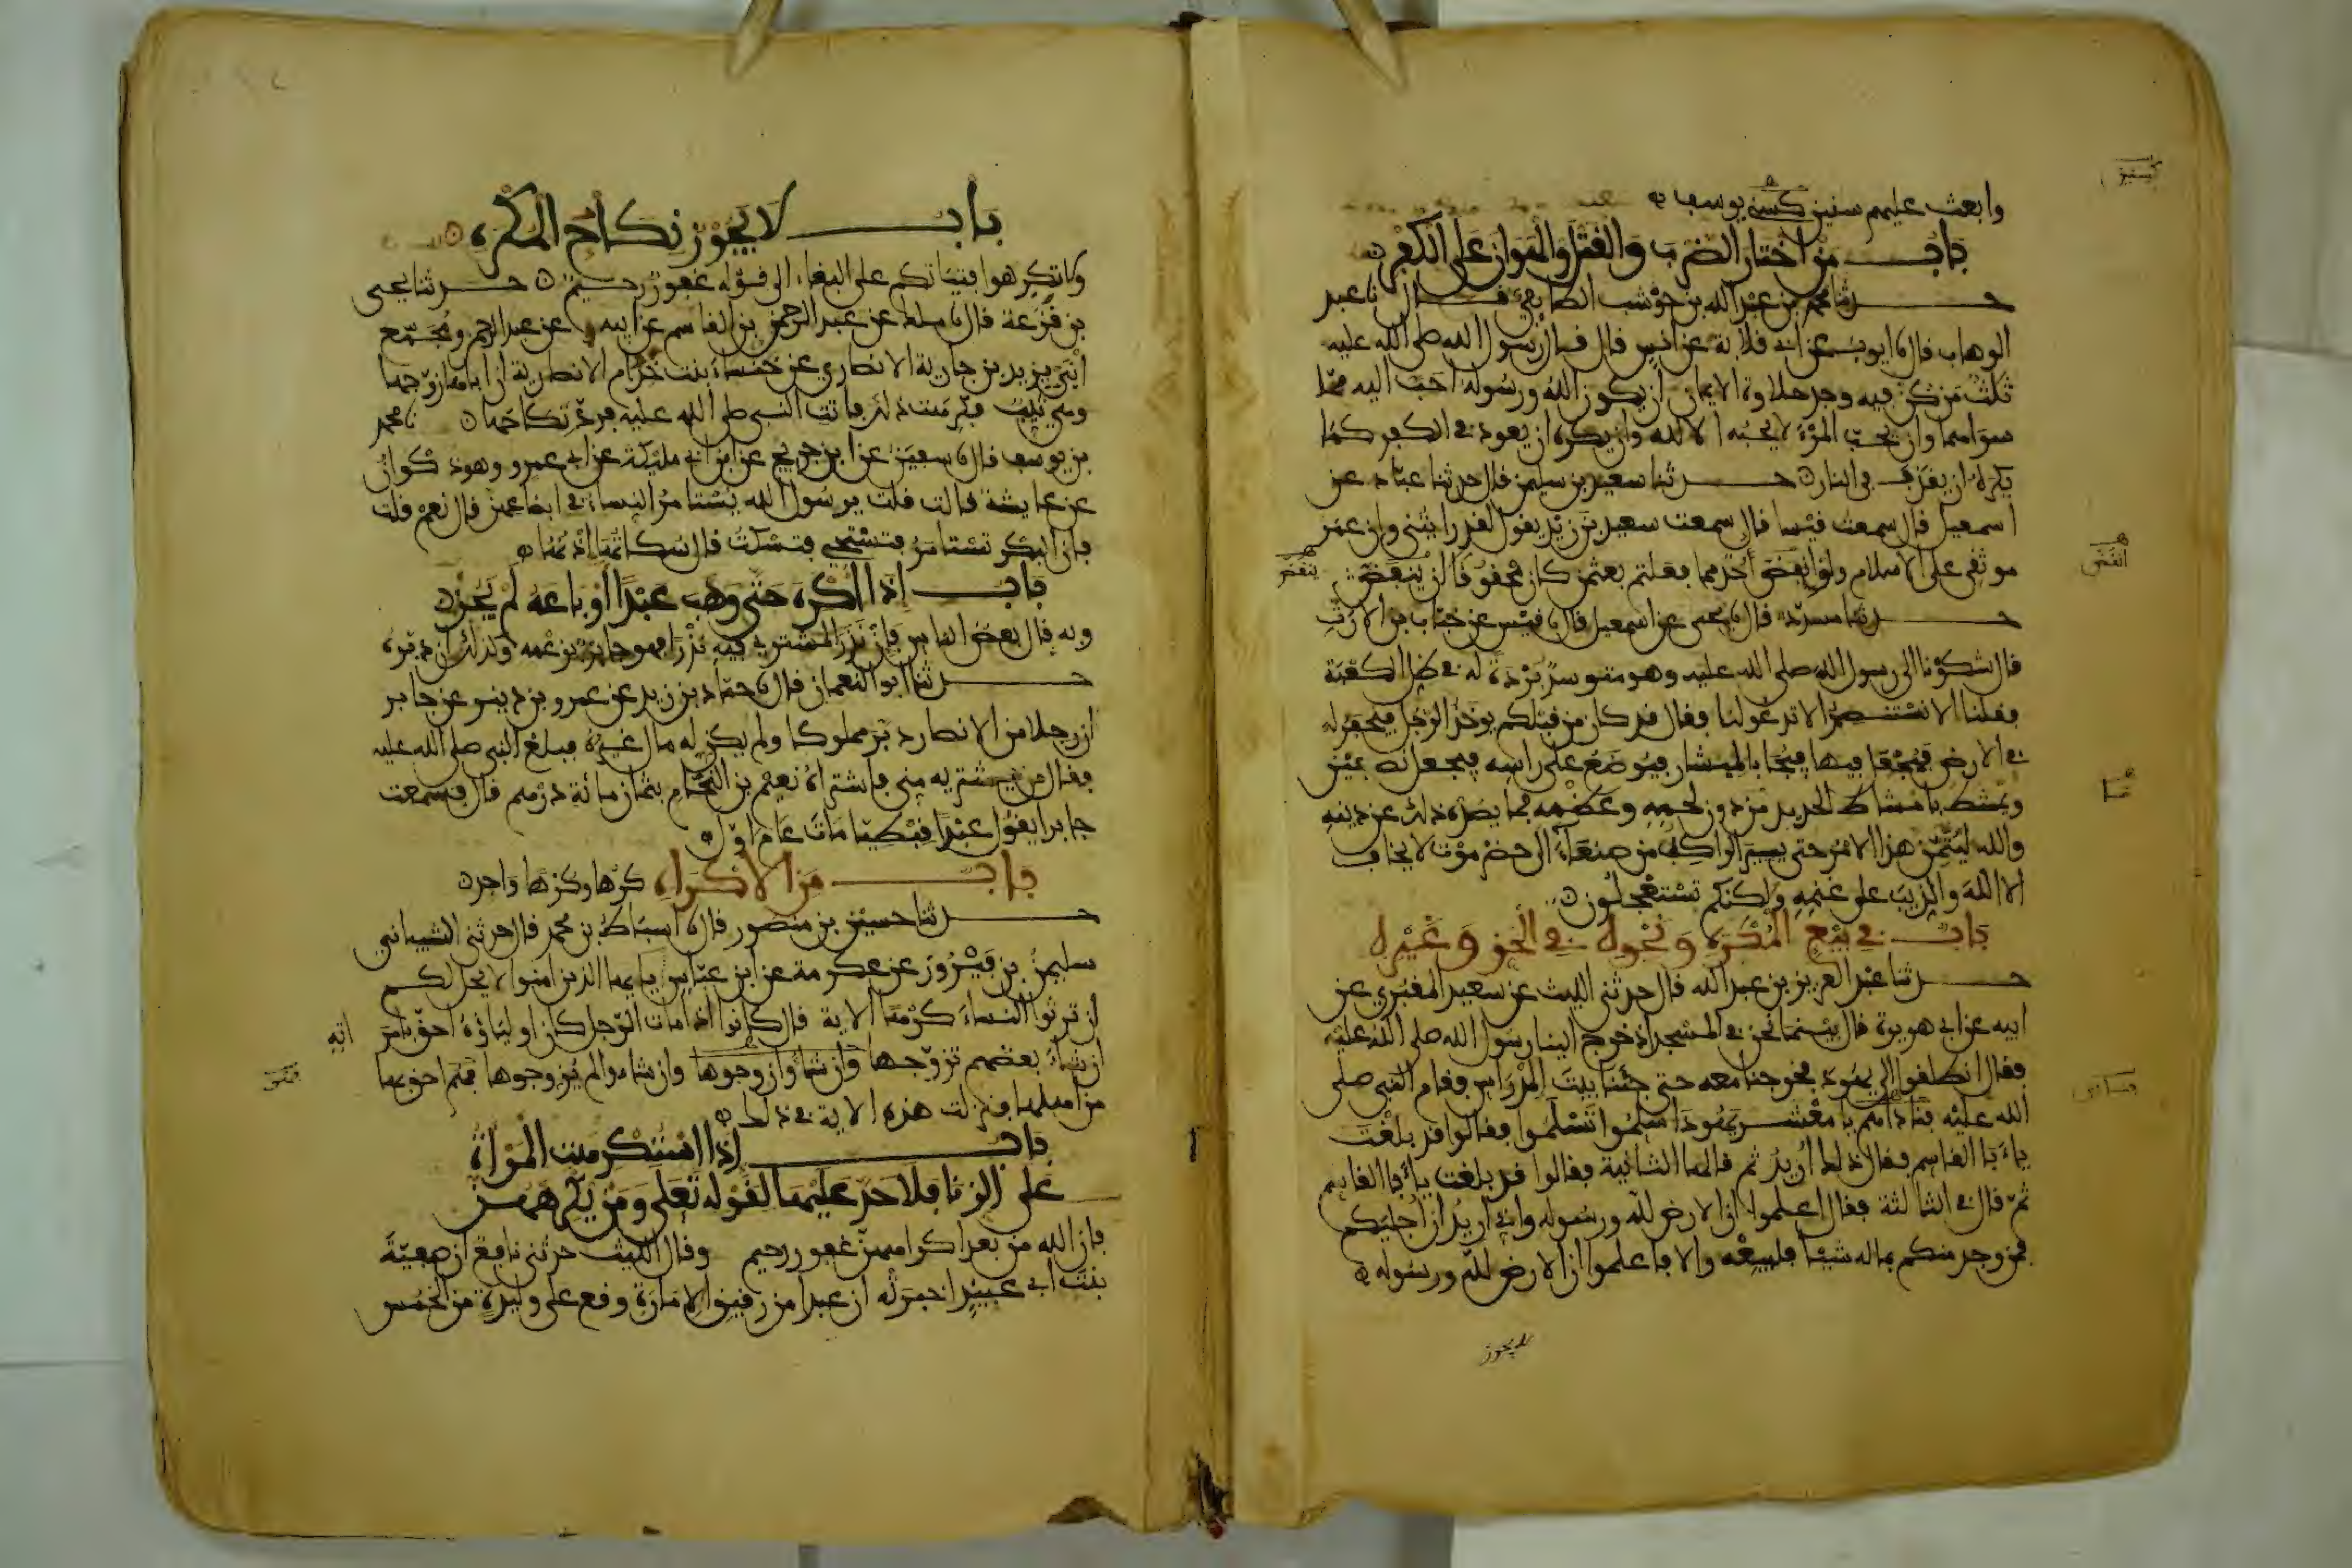 وابعث عليهم سنين كسنى يوسف
باب من اختار الضرب والقتل والهوان على الكفر
حدثنا محمد بن عبد الله بن حوشب الطايفي قال نا عبد
الوهاب قال نا ايوب عن ابي قلابة عن انس قال قال رسول الله صلى الله عليه
ثلث من كن فيه وجد حلاوة الايمان ان يكون الله ورسوله احب اليه مما
سواهما وان يحب المرء لا يحبه الا لله وان يكره ان يعود في الكفر كما
يكره ان يقذف في النار حدثنا سعيد بن سليمن قال حدثنا عباد عن
اسمعيل قال سمعت قيسا قال سمعت سعيد بن زيد يقول لقد رايتني وان عمر
موثقي على الاسلام ولو انقض احد مما فعلتم بعثمن كان محقوقا ان ينقض
حدثنا مسدد قال نا يحيى عن اسمعيل قال نا قيس عن خباب بن الارت
قال شكونا الى رسول الله صلى الله عليه وهو متوسد بردة له في ظل الكعبة
فقلنا الا تستنصر الا تدعو لنا فقال قد كان من قبلكم يوخذ الرجل فيحفر له
في الارض فيجعل فيها فيجا بالميشار فيوضع على راسه فيجعل نصفين
ويمشط بامشاط الحديد من دون لحمه وعظمه فما يصده ذلك عن دينه
والله ليتمن هذا الامر حتى يسير الراكب من صنعاء الى حضرموت لا يخاف
الا الله والذيب على غنمه ولكنكم تستعجلون
باب في بيع المكره ونحوه في الحق وغيره
حدثنا عبد العزيز بن عبد الله قال حدثني الليث عن سعيد المقبري عن
ابيه عن ابي هريرة قال بينما نحن في المسجد اذ خرج الينا رسول الله صلى الله عليه
فقال انطلقوا الى يهود فخرجنا معه حتى جئنا بيت المدراس فقام النبي صلى
الله عليه فناداهم يا معشر يهود اسلموا تسلموا فقالوا قد بلغت
يا ابا القاسم فقال ذلك اريد ثم قالها الثانية فقالوا قد بلغت يا ابا القاسم
ثم قال في الثالثة فقال اعلموا ان الارض لله ورسوله واني اريد ان اجليكم
فمن وجد منكم بماله شيئا فليبعه والا فاعلموا ان الارض لله ورسوله
انقض
ينقض
لا يجوز
باب لا يجوز نكاح المكره
ولا تكرهوا فتياتكم على البغاء الى قوله غفور رحيم حدثنا يحيى
بن قزعة قال نا ملك عن عبد الرحمن بن القاسم عن ابيه عن عبد الرحمن ومجمع
ابني يزيد بن جارية الانصاري عن خنساء بنت خذام الانصارية ان اباها زوجها
وهي ثيب فكرهت ذلك فاتت النبي صلى الله عليه فرد نكاحها نا محمد
بن يوسف قال نا سفين عن ابن جريج عن ابن ابي مليكة عن ابي عمرو وهو ذكوان
عن عايشة قالت قلت يرسول الله يستامر النساء في ابضاعهن قال نعم قلت
فان البكر تستامر فتستحيي فتسكت قال سكاتها اذنها
باب اذا اكره حتى وهب عبدا او باعه لم يجز
وبه قال بعض الناس فان نذر المشتري فيه نذرا فهو جايز بزعمه وكذلك ان دبره
حدثنا ابو النعمان قال نا حماد بن زيد عن عمرو بن دينر عن جابر
ان رجلا من الانصار دبر مملوكا ولم يكن له مال غيره فبلغ النبي صلى الله عليه
فقال من يشتريه مني فاشتراه نعيم بن النحام بثمان مائة درهم قال فسمعت
جابرا يقول عبدا قبطيا مات عام اول
باب من الاكراه كرها وكرها واحد
حدثنا حسين بن منصور قال نا اسباط بن محمد قال حدثني الشيباني
سليمن بن فيروز عن عكرمة عن ابن عباس يا يها الذين امنوا لا يحل لكم
ان ترثوا النساء كرها الاية قال كانوا اذا مات الرجل كان اولياؤه احق بامراته
ان شاء بعضهم تزوجها وان شاوا زوجوها وان شاءوا لم يزوجوها فهم احق بها
من اهلها فنزلت هذه الاية في ذلك
باب اذا استكرهت المراة
على الزنا فلا حد عليها لقوله تعلى ومن يكرههن
فان الله من بعد اكراههن غفور رحيم وقال الليث حدثني نافع ان صفية
بنت ابي عبيد اخبرته ان عبدا من رقيق الامارة وقع على وليدة من الخمس